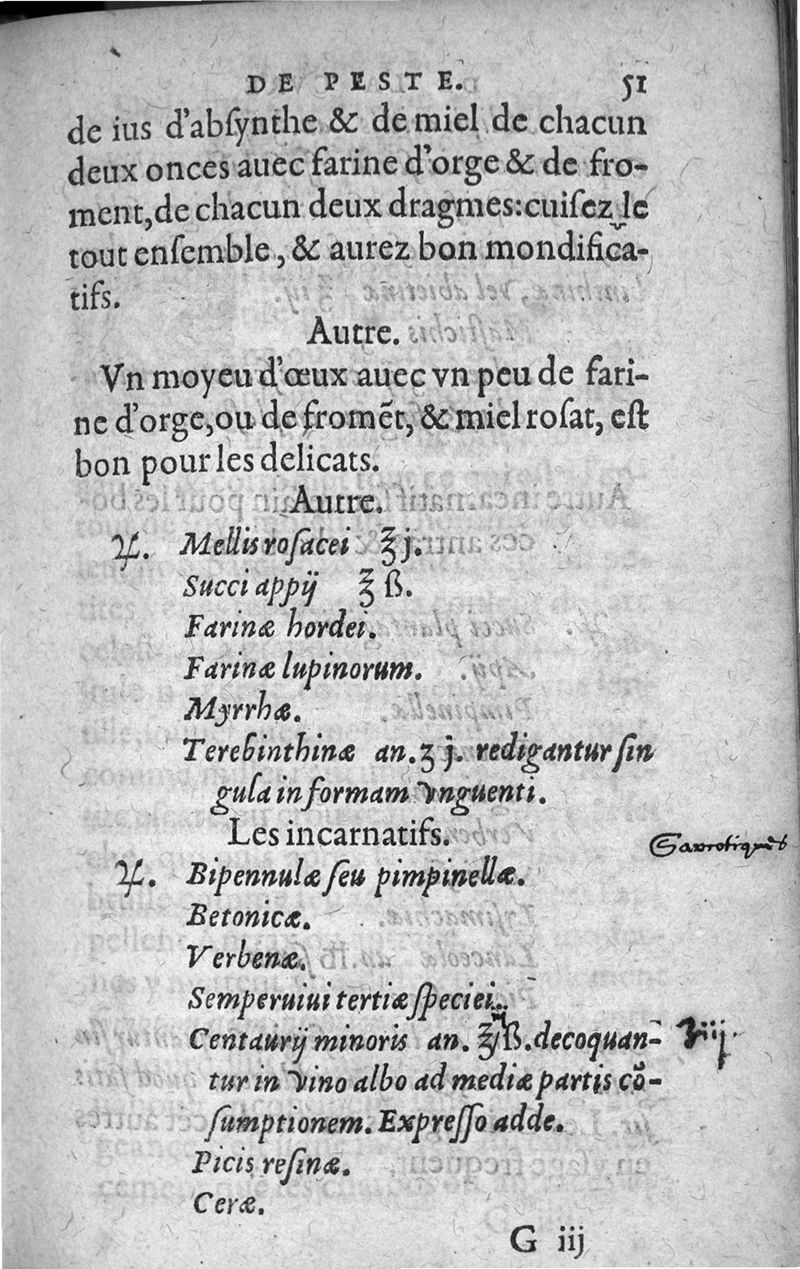 DE PESTE. 51
de ius d'abſynthe & de miel de chacun
deux onces auec farine d'orge & de fro-
ment, de chacun deux dragmes: cuiſez le
tout enſemble, & aurez bon mondifica-
tifs.
Autre.
Vn moyeu d'œux auec vn peu de fari-
ne d'orge, ou de fromẽt, & miel roſat, eſt
bon pour les delicats.
Autre.
♃. Mellis roſacei ℥ j.
Succi appij ℥ ß.
Farinæ hordei.
Farinæ lupinorum.
Myrrhæ.
Terebinthinæ an. ʒ j. redigantur ſin
gula in formam vnguenti.
Les incarnatifs.
♃. Bipennulæ ſeu pimpinellæ.
Betonicæ.
Verbenæ.
Semperuiui tertiæ ſpeciei.
Centaurij minoris an. ℥ ß. decoquan-
tur in vino albo ad mediæ partis cõ-
ſumptionem. Expreſſo adde.
Picis reſinæ.
Ceræ.
G iij